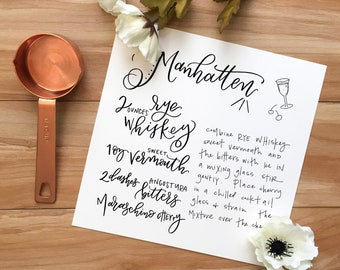 Manhatten
2 OUNCES rye
whiskey
1oz SWEET
Vermouth
2 dashes ANGOSTURA
bitters
Maraschino cherry
combine RYE WHiskey
sweet vermouth and
the bitters with ice in
a mixing glass stir
gently. Place cherry
in a chilled cocktail
glass & strain the
Mixture over the che